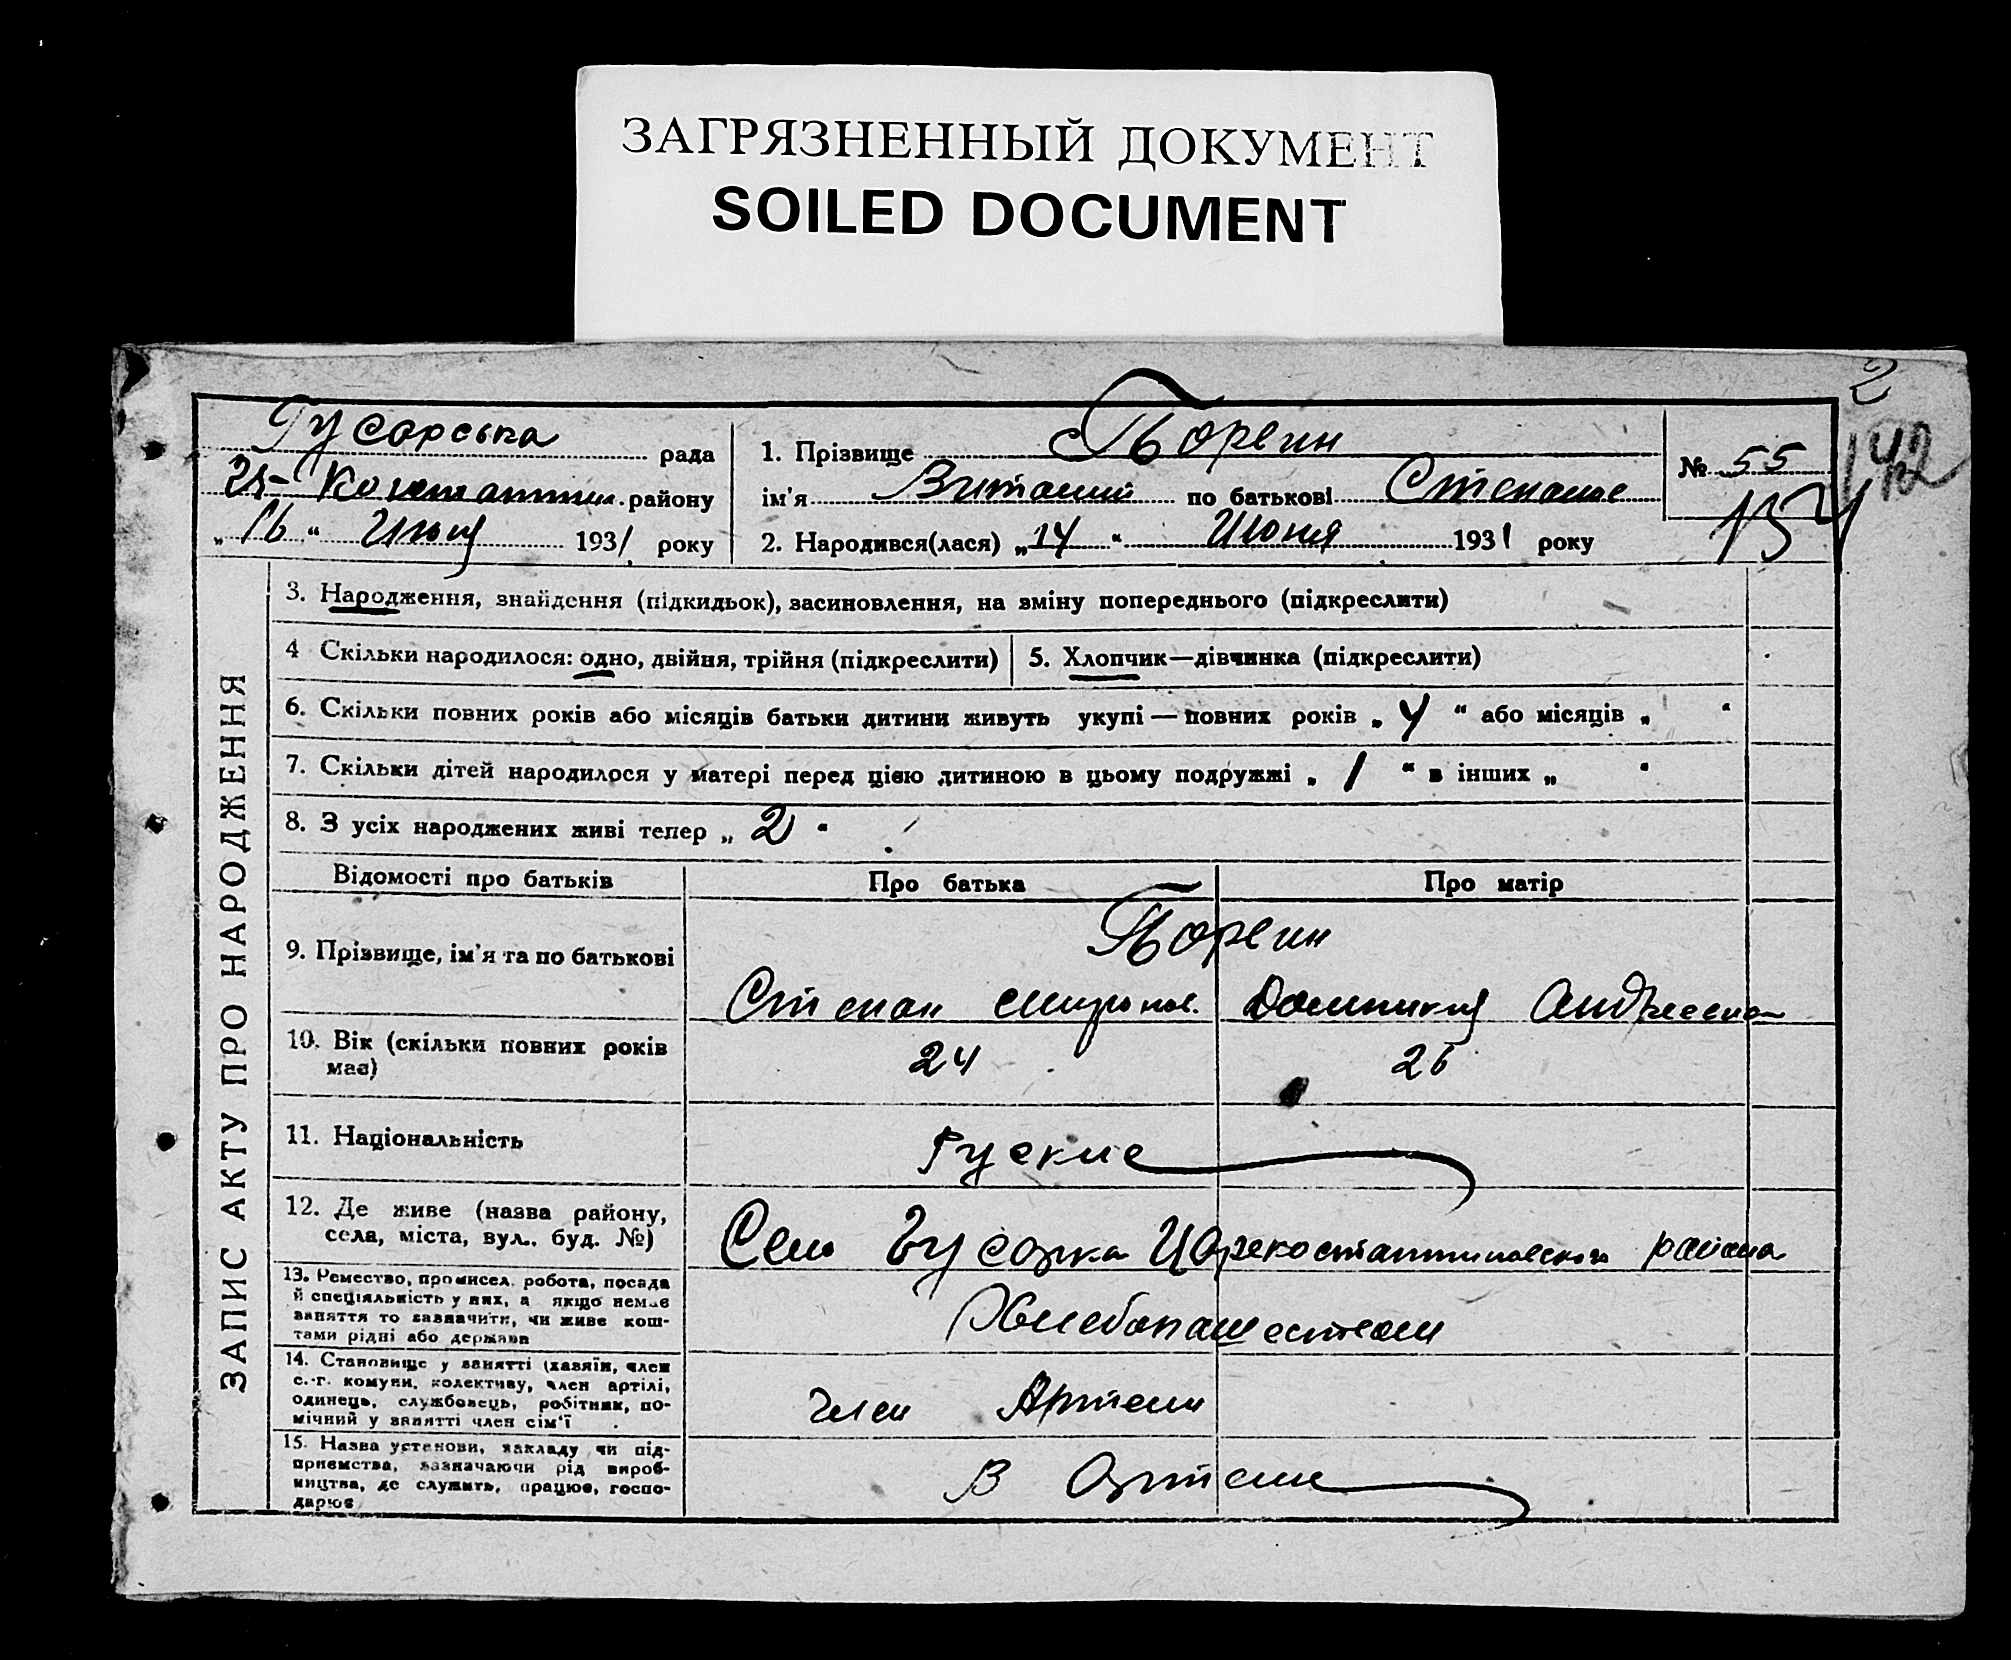 ЗАГРЯЗНЕННЫЙ ДОКУМЕНТ
SOILED DOCUMENT
2
142
Гусарська рада
району
„16“ Июля 1931 року
1. Прізвище
ім'я Виталий по батькові
2. Народився(лася) „14“ Июня 1931 року
№ 55
ЗАПИС АКТУ ПРО НАРОДЖЕННЯ
3. Народження, знайдення (підкидьок), засиновлення, на зміну попереднього (підкреслити)
4 Скільки народилося: одно, двійня, трійня (підкреслити)
5. Хлопчик—дівчинка (підкреслити)
6. Скільки повних років або місяців батьки дитини живуть укупі — повних років „4“ або місяців „ “
7. Скільки дітей народилося у матері перед цією дитиною в цьому подружжі „1“ в інших „ “
8. З усіх народжених живі тепер „2“
Відомості про батьків
Про батька
Про матір
9. Прізвище, ім'я та по батькові
Степан
10. Вік (скільки повних років має)
24
26
11. Національність
Руские
12. Де живе (назва району,
села, міста, вул.. буд. №)
Село Гусарка Царекостантиновского района
13. Ремество, промисел, робота, посада
й спеціяльність у них, а якщо немає
заняття то зазначити, чи живе кош-
тами рідні або держави
Хлебопашеством
14. Становище у занятті (хазяїн, член
с.-г. комуни, колективу, член артілі,
одинець, службовець, робітник, по-
мічний у занятті член сім'ї
член Артели
15. Назва установи, закладу чи під-
приємства, зазначаючи рід вироб-
ництва, де служить, працює, госпо-
дарює
В Артели